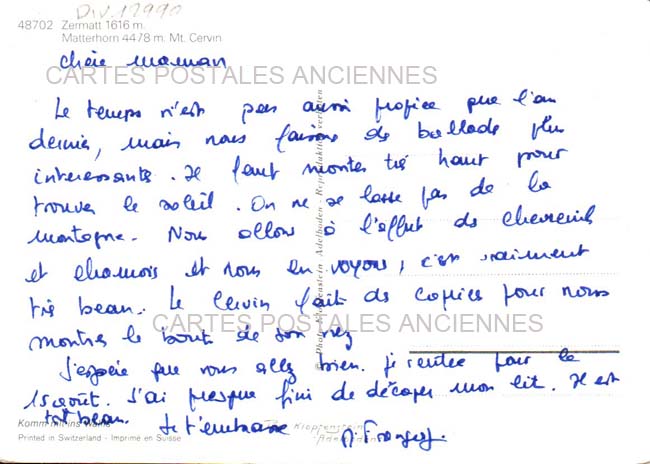 Div. 12990
48702 Zermatt 1616 m.
Matterhorn 4478 m. Mt. Cervin
Chère maman
CARTES POSTALES ANCIENNES
Le temps n'est pas aussi propice que l'an
dernier, mais nous faisons des ballades plus
interessantes. Il faut monter très haut pour
trouver le soleil. On ne se lasse pas de la
montagne. Nous allons à l'affut des chevreuils
et chamois et nous en voyons, c'est vraiment
très beau. Le Cervin fait des copies pour nous
CARTES POSTALES ANCIENNES
montrer le bout de son nez
J'espère que vous allez bien. je rentre pour le
15 août. J'ai presque fini de décaper mon lit. Il est
tot beau. Je t'embrasse
Komm mit ins Wallis
Printed in Switzerland - Imprimé en Suisse
Klopfenstein
Adelboden
© Photo Klopfenstein Adelboden - Reproduktion verboten